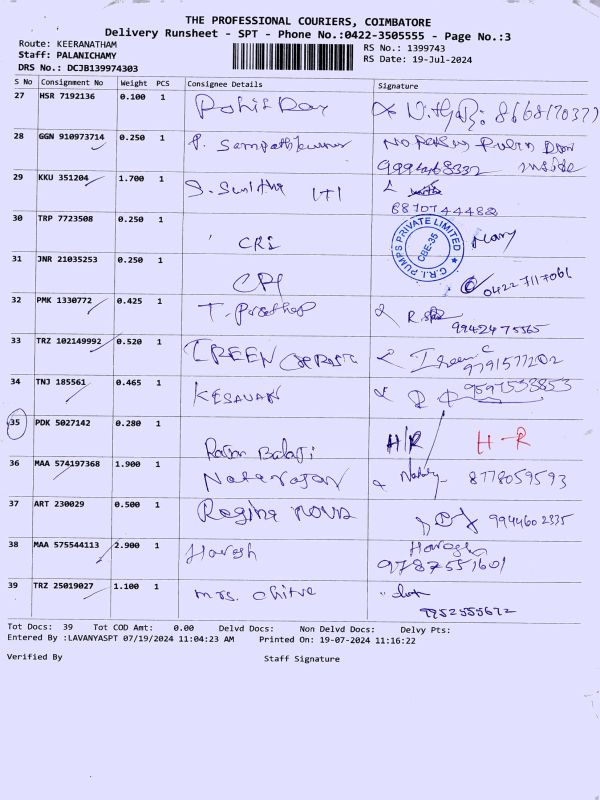 THE PROFESSIONAL COURIERS, COIMBATORE
Delivery Runsheet - SPT - Phone No.:0422-3505555 - Page No.:3
Route: KEERANATHAM
RS No.: 1399743
Staff: PALANICHAMY
RS Date: 19-Jul-2024
DRS No.: DCJB139974303
S No Consignment No Weight PCS Consignee Details Signature
27 HSR 7192136 0.100 1
28 GGN 910973714 0.250 1 P. Sampathkumar
inside
29 KKU 351204 1.700 1 S. Sunitha
8870744482
30 TRP 7723508 0.250 1 CRI
C.R.I. PUMPS PRIVATE LIMITED
CBE-35
31 JNR 21035253 0.250 1 CRI 0422 7117061
32 PMK 1330772 0.425 1 T. Prathap
9942475565
33 TRZ 102149992 0.520 1 IREEN
9791577202
34 TNJ 185561 0.465 1 KESAVAN 9597538853
35 PDK 5027142 0.280 1 H/R H-R
Balaji
36 MAA 574197368 1.900 1 Natarajan 8778059593
37 ART 230029 0.500 1 Regina 9944602335
38 MAA 575544113 2.900 1 Haresh
9787551601
39 TRZ 25019027 1.100 1 mrs. Chitra
9952555672
Tot Docs: 39 Tot COD Amt: 0.00 Delvd Docs: Non Delvd Docs: Delvy Pts:
Entered By :LAVANYASPT 07/19/2024 11:04:23 AM Printed On: 19-07-2024 11:16:22
Verified By Staff Signature